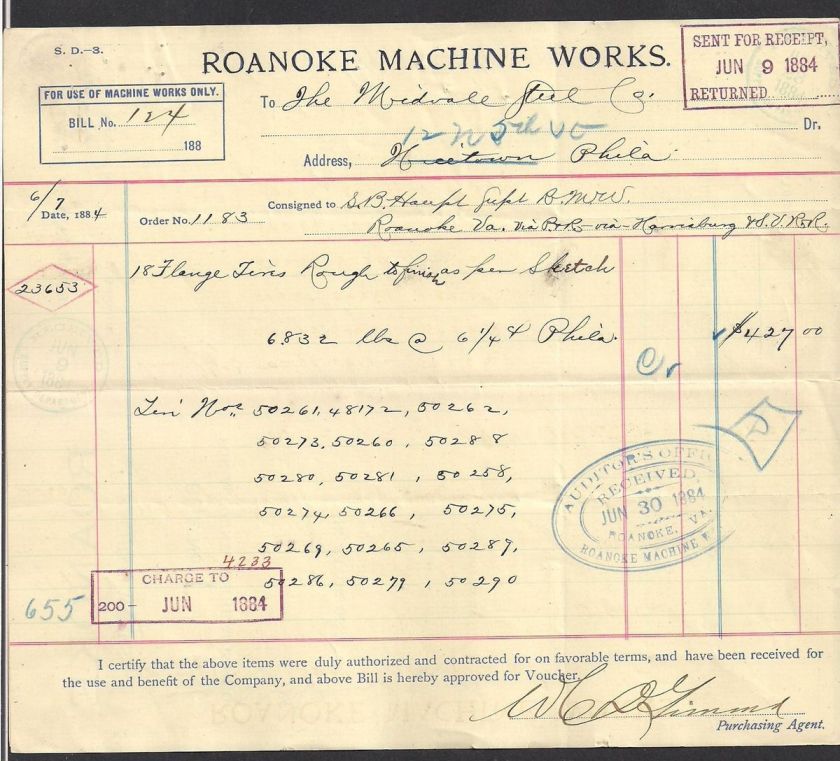 S. D.-3.
ROANOKE MACHINE WORKS.
SENT FOR RECEIPT,
JUN 9 1884
RETURNED
FOR USE OF MACHINE WORKS ONLY.
BILL No. 124
188
To The Midvale Steel Co. Dr.
12 N 5th St
Address, Nicetown Phila
6/7
Date, 1884
Order No. 1183
Consigned to S.B. Haupt Supt R.M.W.
Roanoke Va. via P&R via Harrisburg & S.V.R.R.
23653
18 Flange Tires Rough to finish as per Sketch
6.832 lbs @ 6 1/4 ¢ Phila. $427 00
Cr
Tire Nos. 50261, 48172, 50262,
50273, 50260, 50288
50280, 50281, 50258,
50274, 50266, 50275,
50269, 50265, 50289,
50286, 50279, 50290
AUDITOR'S OFFICE
RECEIVED,
JUN 30 1884
ROANOKE, VA.
ROANOKE MACHINE W
4233
CHARGE TO
200- JUN 1884
655
I certify that the above items were duly authorized and contracted for on favorable terms, and have been received for
the use and benefit of the Company, and above Bill is hereby approved for Voucher.
Purchasing Agent.